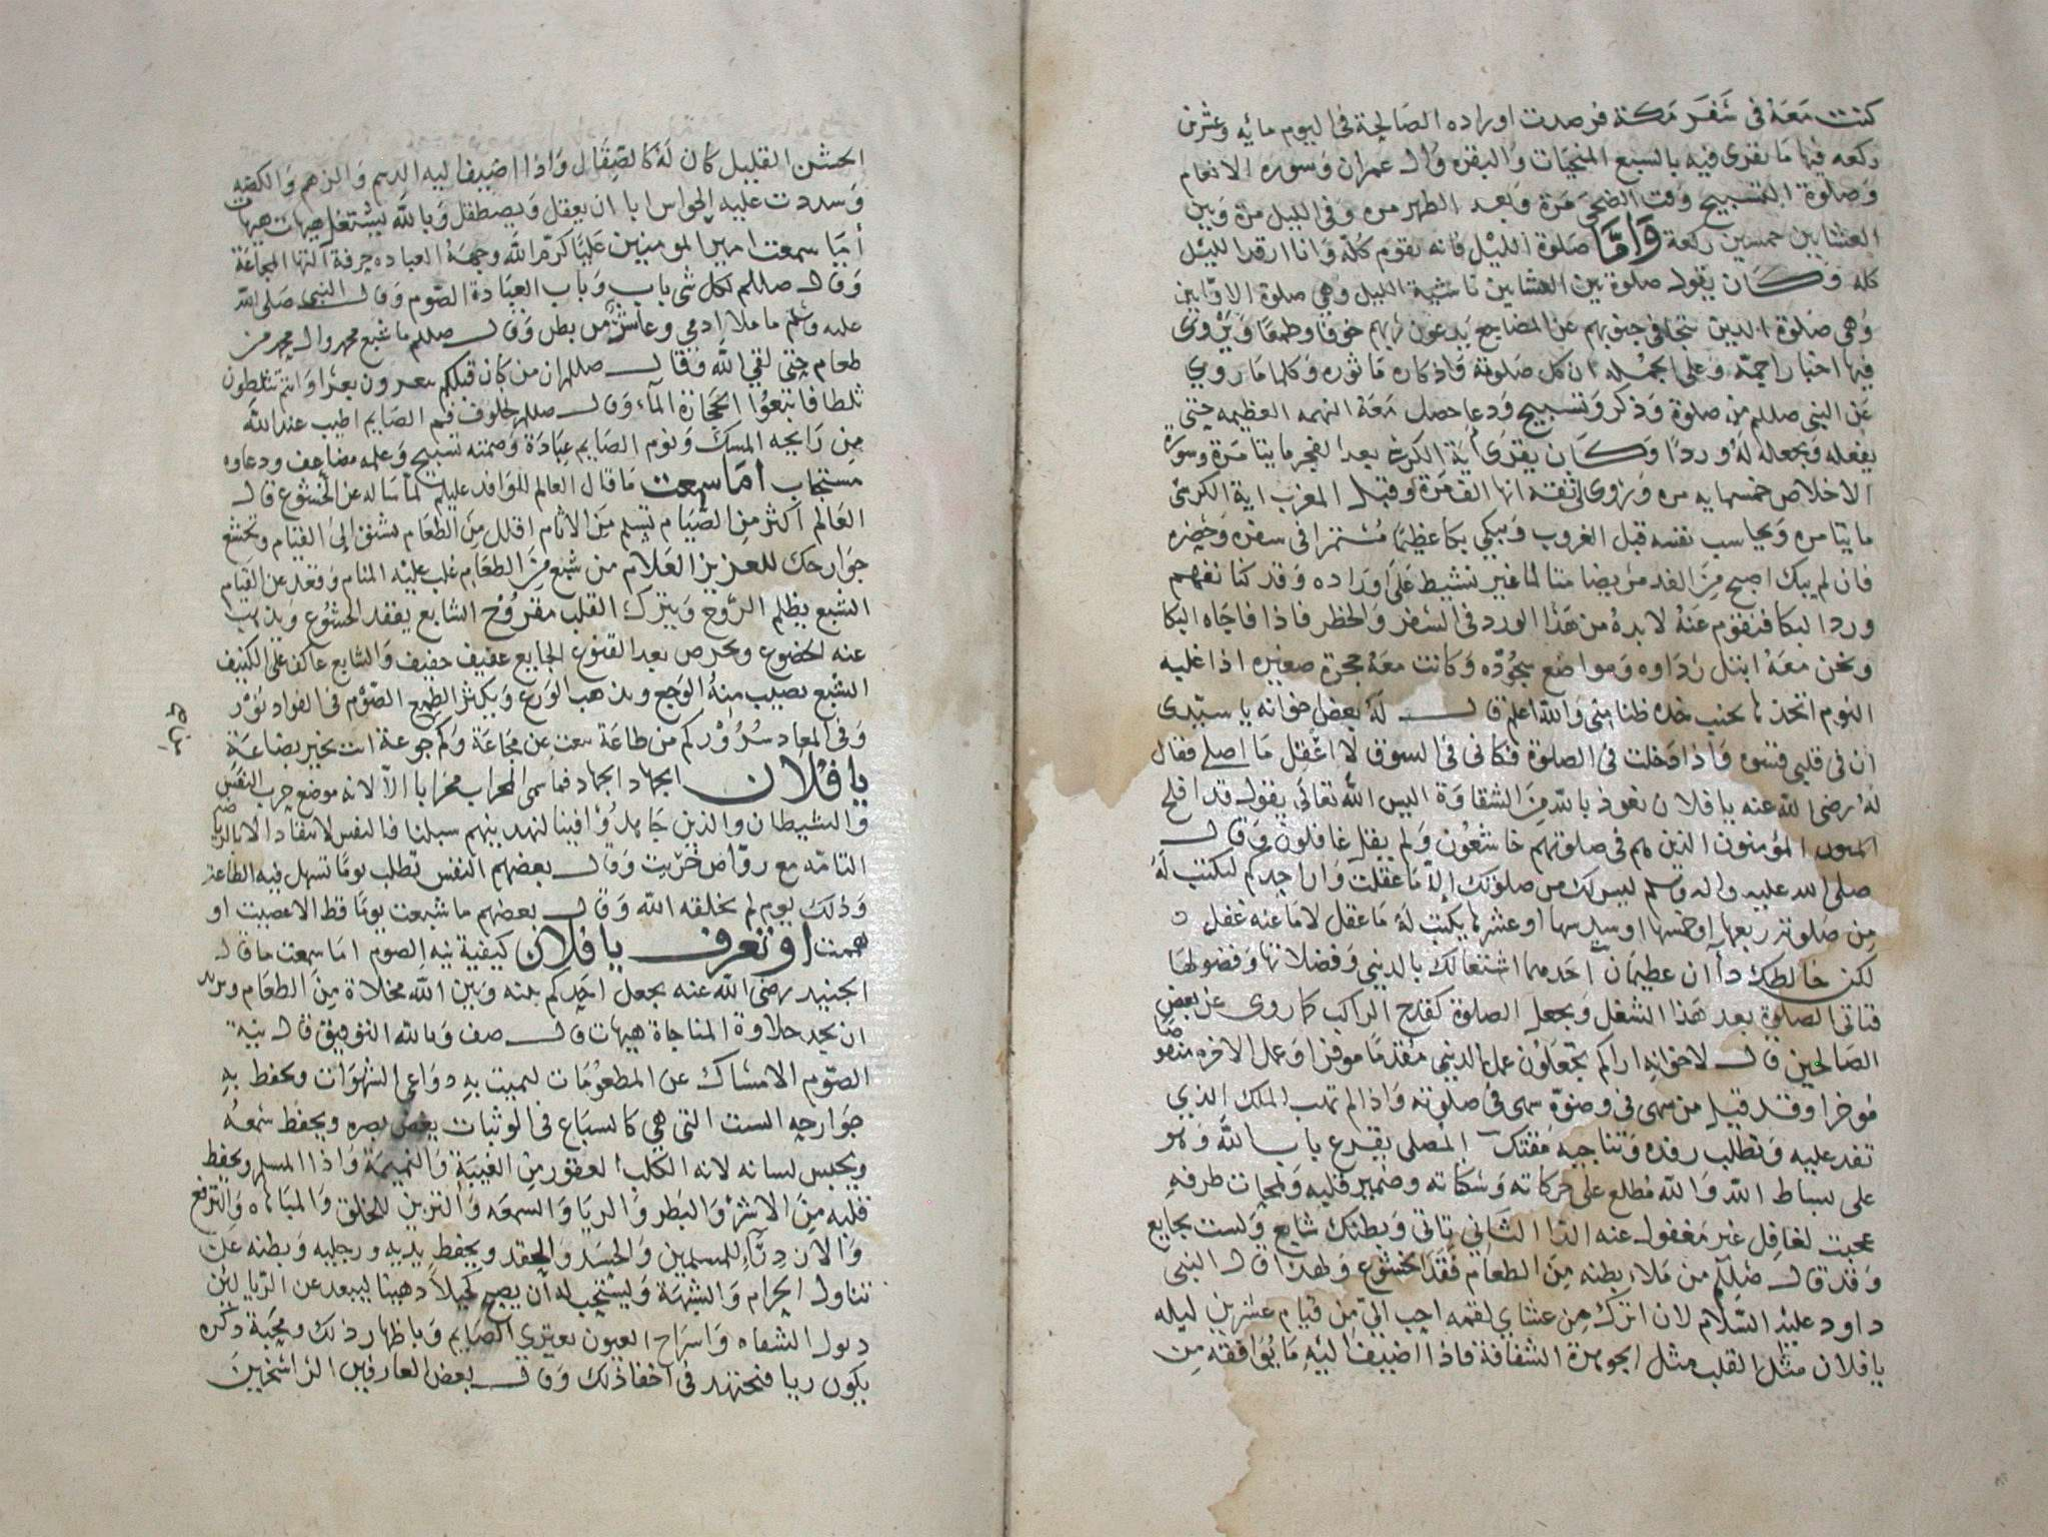 كنت معه في سفر مكة فرصدت اوراده الصالحة في اليوم مائه وعشرين
ركعه فيها ما يقرى فيه بالسبع المنجيات والبقره وال عمران وسوره الانعام
وصلوة التسبيح وقت الضحى مرة وبعد الظهر مره وفي الليل مرة وبين
العشايين خمسين ركعة واما صلوة الليل فانه يقوم كله وانا ارقد الليل
كله وكان يقول صلوة بين العشايين ناشية الليل وهي صلوة الاوابين
وهي صلوة الذين تتجافى جنوبهم عن المضاجع يدعون ربهم خوفا وطمعا ويروى
فيها اخبارا جمة وعلى الجمله ان كل صلوته واذكاره ماثوره وكلما روي
عن النبي صللم من صلوة وذكر وتسبيح ودعا حصل معه النهمه العظيمه حتى
يفعله ويجعله له وردا وكان يقرى اية الكرسي بعد الفجر مايتا مرة وسورة
الاخلاص خمسمايه مره ويروى ثقة انها الف مرة وقبل المغرب اية الكرسي
مايتا مره ويحاسب نفسه قبل الغروب ويبكي بكا عظيما مستمرا في سفره وحضره
فان لم يبك اصبح من الغد مريضا متالما غير نشيط على اوراده وقد كنا نفهم
وردا لبكا فنقوم عنه لابد من هذا الورد في السفر والحظر فاذا فاجاه البكا
ونحن معه ابتل رداوه ومواضع سجوده وكانت معه محجرة صغيره اذا غلبه
النوم اتخذها بجنب خده ظنا مني والله اعلم قال له بعض اخوانه يا سيدى
ان في قلبي قسوه واذا دخلت في الصلوة فكاني في السوق لا اعقل ما اصلي فقال
له رضى الله عنه يا فلان نعوذ بالله من الشقاوة اليس الله تعالى يقول قد افلح
المؤمنون الذين هم في صلوتهم خاشعون ولم يقل غافلون وقال
صلى الله عليه واله وسلم ليس لك من صلوتك الا ما عقلت وان احدكم ليكتب له
من صلوته ربعها او خمسها او سدسها او عشرها يكتب له ما عقل لا ما عنه غفل
لكن خالطك داآن عظيمان احدهما اشتغالك بالدنيى وفضلاتها وفضولها
فتاتي الصلوة بعد هذا الشغل ويجعل الصلوة كقدح الراكب كما روى عن بعض
الصالحين قال لاخوانه اراكم تجعلون عمل الدنيى مقدما موفرا وعمل الاخره منقوصا
موخرا وقد قيل من سهى في وضوة سهى في صلوته واذا لم تهب الملك الذي
تفد عليه وتطلب رفده وتناجيه مقتك المصلى يقرع باب الله وهو
على بساط الله والله مطلع على حركاته وسكناته وضمير قلبه ولمحات طرفه
عجبت لغافل غير مغفول عنه الدا الثاني تاتي وبطنك شابع ولست بجايع
وقد قال صللم من ملاء بطنه من الطعام فقد الخشوع ولهذا قال النبى
داود عليه السلام لان اترك من عشاي لقمه احب الي من قيام عشرين ليله
يا فلان مثل القلب مثل الجوهرة الشفافة فاذا اضيف اليه ما يوافقه من
الخشن القليل كان له كالصقال واذا اضيف اليه الدسم والزهم والكظه
وسددت عليه الحواس ابا ان يعقل ويصطقل وبالله يشتغل هيهات هيهات
أما سمعت امير المومنين عليا كرم الله وجهه العباده حرفة التها المجاعة
وقال صللم لكل شي باب وباب العبادة الصوم وقال النبي صلى الله
عليه وسلم ما ملا ادمي وعا شر من بطن وقال صللم ما شبع محمد وال محمد من
طعام حتى لقي الله وقال صللم ان من كان قبلكم يبعرون بعرا وانتم تثلطون
ثلطا فاتبعوا الحجارة المآء وقال صللم لخلوف فم الصايم اطيب عند الله
من رايحه المسك ونوم الصايم عبادة وصمته تسبيح وعمله مضاعف ودعاوه
مستجاب اما سمعت ما قال العالم للوافد عليكم لما ساله عن الخشوع قال
العالم اكثر من الصيام تسلم من الاثام اقلل من الطعام تشتق إلى القيام وتخشع
جوارحك للعزيز العلام من شبع من الطعام غلب عليه المنام وقعد عن القيام
الشبع يظلم الروح ويترك القلب مقروح الشابع يفقد الخشوع ويذهب
عنه الخضوع ويحرص بعد القنوع الجايع عفيف خفيف والشابع عاكف على الكنيف
الشبع يصيب منه الوجع ويذهب الورع ويكثر الطمع الصوم في الفواد نور
وفي المعاد سرور كم من طاعة سعت عن مجاعة وكم جوعة اتت بخير بضاعة
يا فلان الجهاد الجهاد فما سمي المحراب محرابا الا لانه موضع حرب النفس
والشيطان والذين جاهدوا فينا لنهدينهم سبلنا فالنفس لا تنقاد الا بالرياضه
التامه مع رواض خريت وقال بعضهم النفس تطلب يوما تسهل فيه الطاعة
وذلك يوم لم يخلقه الله وقال بعضهم ما شبعت يوما قط الا عصيت او
هممت او تعرف يا فلان كيفية نية الصوم اما سمعت ما قال
الجنيد رضى الله عنه يجعل احدكم بينه وبين الله مخلاة من الطعام ويريد
ان يجد حلاوة المناجاة هيهات قال صف وبالله التوفيق قال نية
الصوم الامساك عن المطعومات لتميت به دواعي الشهوات وتحفظ به
جوارحه الست التي هي كالسباع في الوثبات يغض بصره ويحفظ سمعه
ويحبس لسانه لانه الكلب العقور من الغيبة والنميمة واذا المسلم ويحفظ
قلبه من الاشر والبطر والريا والسمعه والتزين للخلق والمباهاه والترفع
والازدرآء للمسلمين والحسد والحقد ويحفظ يديه ورجليه وبطنه عن
تناول الحرام والشبهة ويستحب له أن يصبح كحيلا دهينا ليبعد عن الريا لئن
ذبول الشفاه يعترى الصايم وباظهار ذلك ومحبة ذكره
يكون ريا فنجتهد في اخفا ذلك وقال بعض العارفين الراسخين